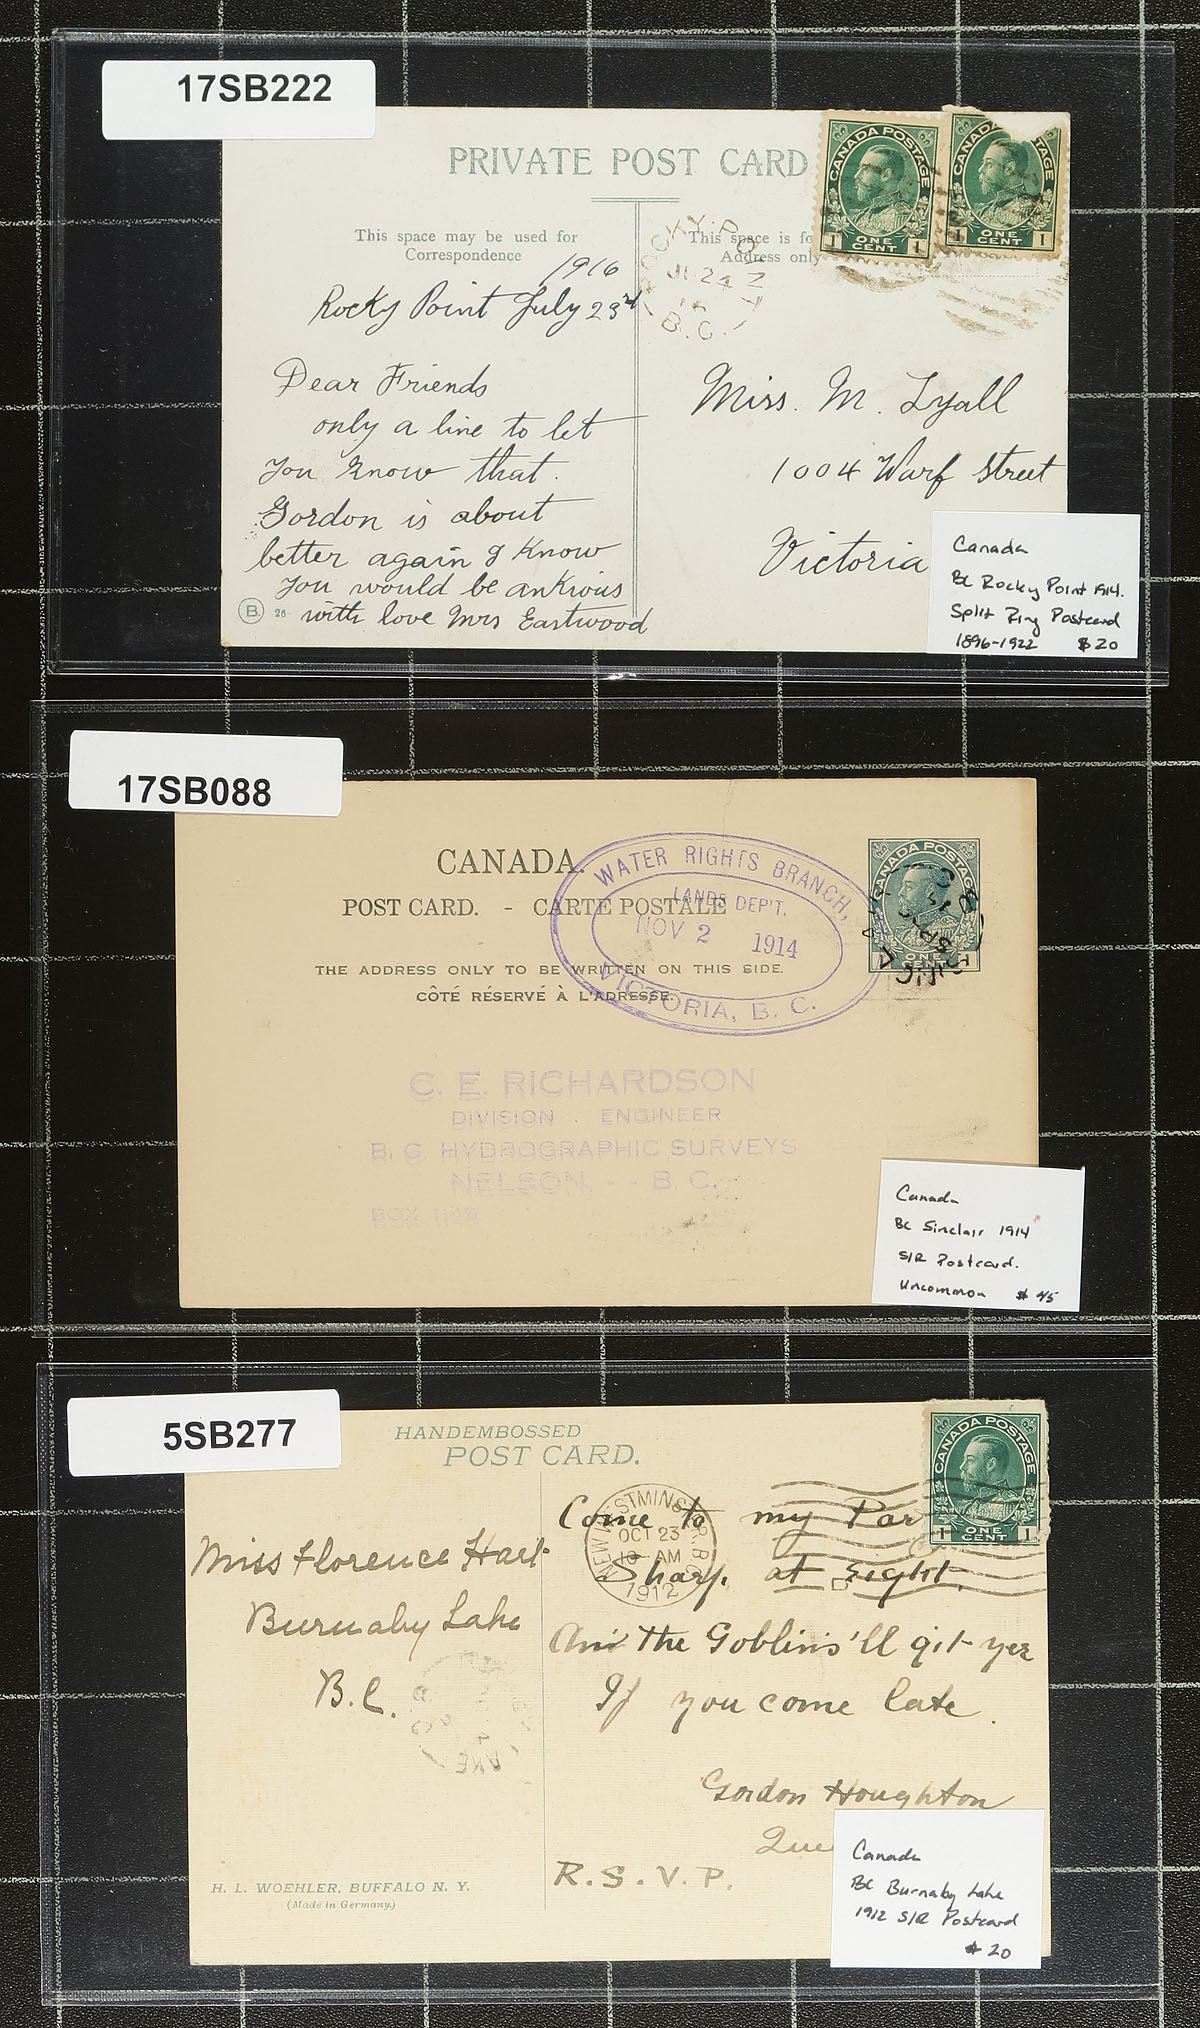 17SB222
PRIVATE POST CARD
This space may be used for
Correspondence
This space is fo
Address only
CANADA POSTAGE
1 ONE CENT 1
CANADA POSTAGE
1 ONE CENT 1
ROCKY POINT
JL 24
16
B.C.
1916
Rocky Point July 23rd
Dear Friends
only a line to let
you know that.
Gordon is about
better again I know
you would be ankious
with love Mrs Eastwood
B. 26
Miss. M. Lyall
1004 Warf Street
Victoria
Canada
BC Rocky Point 1914.
Split Ring Postcard
1896-1922 $20
17SB088
CANADA.
POST CARD. - CARTE POSTALE
THE ADDRESS ONLY TO BE WRITTEN ON THIS SIDE.
CÔTÉ RÉSERVÉ À L'ADRESSE.
WATER RIGHTS BRANCH,
LANDS DEP'T.
NOV 2 1914
VICTORIA, B. C.
CANADA POSTAGE
1 ONE CENT 1
C. E. RICHARDSON
DIVISION . ENGINEER
B. C. HYDROGRAPHIC SURVEYS
NELSON, -- B. C.
Canada
BC Sinclair 1914
S/R Postcard.
Uncommon $45
5SB277
HANDEMBOSSED
POST CARD.
CANADA POSTAGE
1 ONE CENT 1
NEW WESTMINSTER. B.C.
OCT 23
10 AM
1912
Come to my Par
Sharp. at eight.
An' the Goblins'll git yer
If you come late.
Gordon Houghton
Que
R. S. V. P.
Miss Florence Hart
Burnaby Lake
B.C.
H. L. WOEHLER, BUFFALO N. Y.
(Made in Germany.)
Canada
BC Burnaby Lake
1912 S/R Postcard
$20